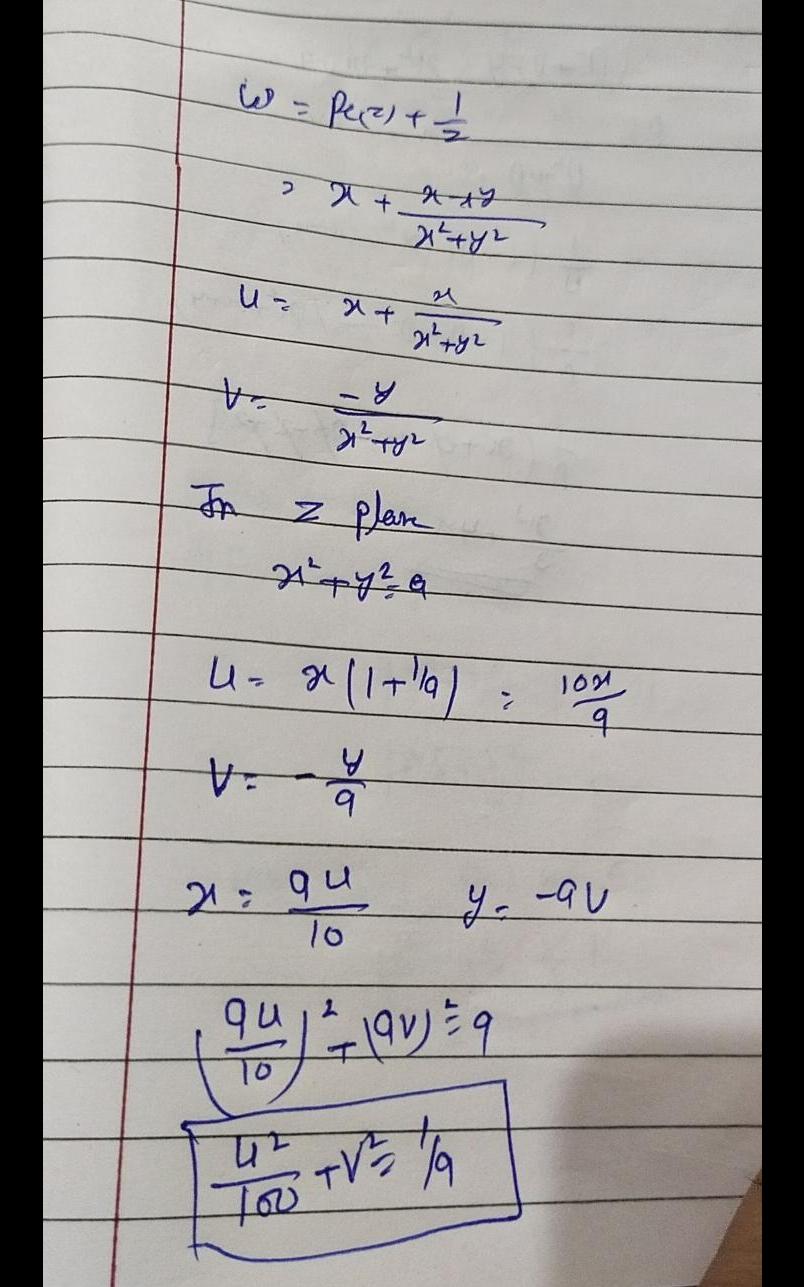 ω = Re(z) + 1/z
= x + x-iy/x²+y²
u = x + x/x²+y²
v = -y/x²+y²
In z plane
x²+y²=9
u = x(1+1/9) = 10x/9
v = -y/9
x = 9u/10 y = -9v
(9u/10)² + (9v)² = 9
u²/100 + v² = 1/9